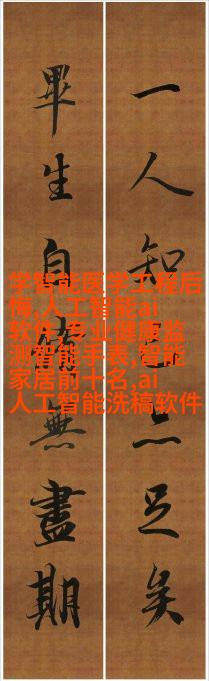 一人知己亦足矣
畢生自修無盡期
学智能医学工程后
悔,人工智能ai
软件,专业健康监
测智能手表,智能
家居前十名,ai
人工智能洗稿软件